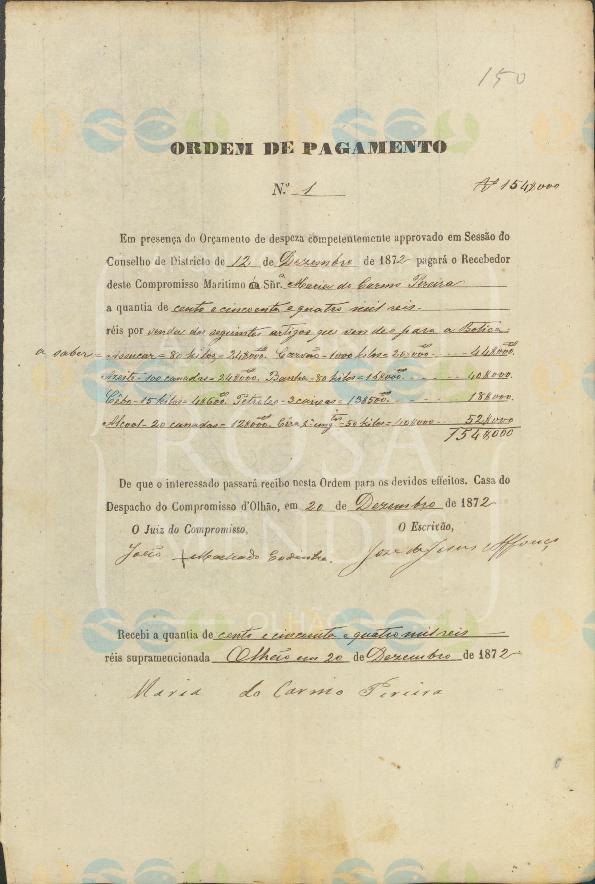 150
ORDEM DE PAGAMENTO
N.º 1
154$000
Em presença do Orçamento de despeza competentemente approvado em Sessão do
Conselho de Districto de 12 de Dezembro de 1872 pagará o Recebedor
deste Compromisso Maritimo á Sñr.ª Maria do Carmo Pereira
a quantia de cento e cincoenta e quatro mil reis
réis por venda dos seguintes artigos que vendeo para a Botica
a saber = Assucar = 80 kilos = 24$000. Carvão = 1000 kilos = 20$000 44$000.
Azeite = 100 canadas = 24$000. Banha = 80 kilos = 16$000. 40$000.
Cêbo = 15 kilos = 4$500. Petroleo = 3 caixas = 13$500. 18$000.
Alcool = 20 canadas = 12$000. Cêra = 50 kilos = 40$000 52$000
154$000
De que o interessado passará recibo nesta Ordem para os devidos effeitos. Casa do
Despacho do Compromisso d'Olhão, em 20 de Dezembro de 1872
O Juiz do Compromisso,
O Escrivão,
João Machado
José de Jesus Affonço
ROSA
OLHÃO
Recebi a quantia de cento e cincoenta e quatro mil reis
réis supramencionada Olhão em 20 de Dezembro de 1872
Maria do Carmo Pereira